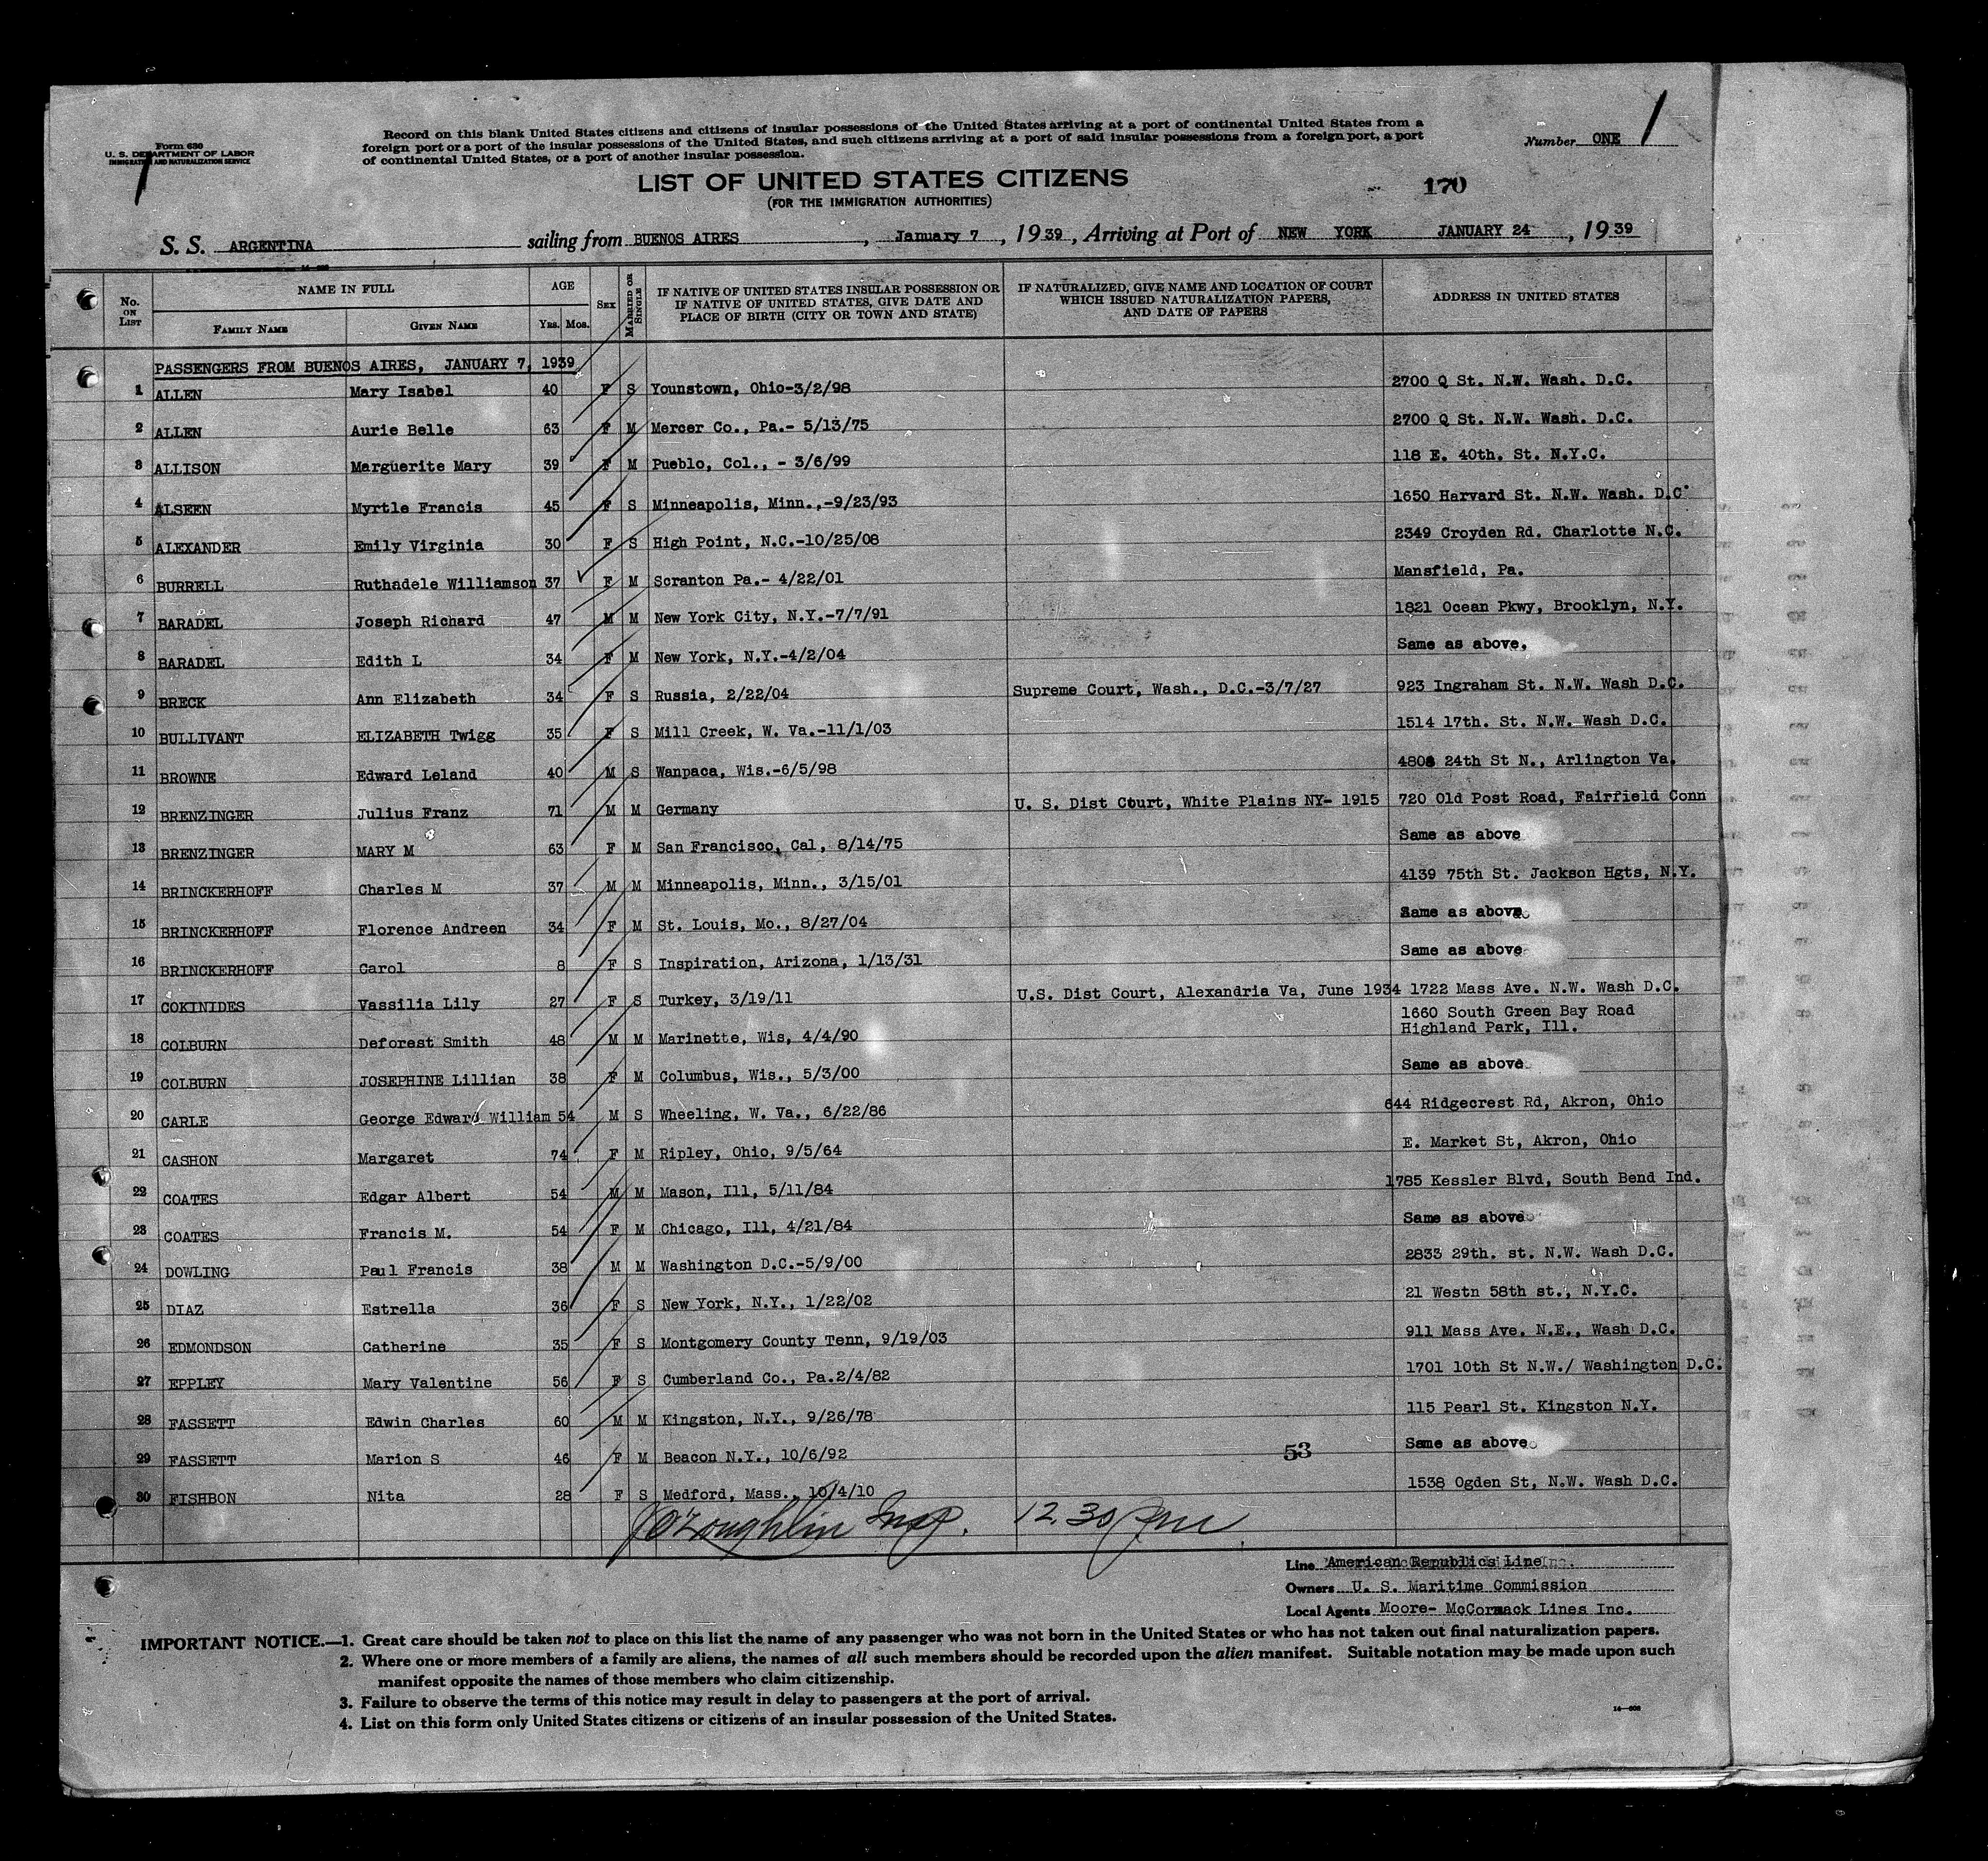 Form 630
U. S. DEPARTMENT OF LABOR
IMMIGRATION AND NATURALIZATION SERVICE
Record on this blank United States citizens and citizens of insular possessions of the United States arriving at a port of continental United States from a
foreign port or a port of the insular possessions of the United States, and such citizens arriving at a port of said insular possessions from a foreign port, a port
of continental United States, or a port of another insular possession.
Number ONE 1
LIST OF UNITED STATES CITIZENS
(FOR THE IMMIGRATION AUTHORITIES)
170
S. S. ARGENTINA sailing from BUENOS AIRES, January 7, 1939, Arriving at Port of NEW YORK JANUARY 24, 1939
No. ON LIST
NAME IN FULL
FAMILY NAME GIVEN NAME
AGE
YRS. MOS.
SEX
MARRIED OR SINGLE
IF NATIVE OF UNITED STATES INSULAR POSSESSION OR
IF NATIVE OF UNITED STATES, GIVE DATE AND
PLACE OF BIRTH (CITY OR TOWN AND STATE)
IF NATURALIZED, GIVE NAME AND LOCATION OF COURT
WHICH ISSUED NATURALIZATION PAPERS,
AND DATE OF PAPERS
ADDRESS IN UNITED STATES
PASSENGERS FROM BUENOS AIRES, JANUARY 7, 1939
1 ALLEN Mary Isabel 40 F S Younstown, Ohio-3/2/98 2700 Q St. N.W. Wash. D.C.
2 ALLEN Aurie Belle 63 F M Mercer Co., Pa.- 5/13/75 2700 Q St. N.W. Wash. D.C.
3 ALLISON Marguerite Mary 39 F M Pueblo, Col., - 3/6/99 118 E. 40th. St. N.Y.C.
4 ALSEEN Myrtle Francis 45 F S Minneapolis, Minn.,-9/23/93 1650 Harvard St. N.W. Wash. D.C.
5 ALEXANDER Emily Virginia 30 F S High Point, N.C.-10/25/08 2349 Croyden Rd. Charlotte N.C.
6 BURRELL Ruthadele Williamson 37 F M Scranton Pa.- 4/22/01 Mansfield, Pa.
7 BARADEL Joseph Richard 47 M M New York City, N.Y.-7/7/91 1821 Ocean Pkwy, Brooklyn, N.Y.
8 BARADEL Edith L 34 F M New York, N.Y.-4/2/04 Same as above.
9 BRECK Ann Elizabeth 34 F S Russia, 2/22/04 Supreme Court, Wash., D.C.-3/7/27 923 Ingraham St. N.W. Wash D.C.
10 BULLIVANT ELIZABETH Twigg 35 F S Mill Creek, W. Va.-11/1/03 1514 17th. St. N.W. Wash D.C.
11 BROWNE Edward Leland 40 M S Wanpaca, Wis.-6/5/98 4808 24th St N., Arlington Va.
12 BRENZINGER Julius Franz 71 M M Germany U. S. Dist Court, White Plains NY- 1915 720 Old Post Road, Fairfield Conn
13 BRENZINGER MARY M 63 F M San Francisco, Cal, 8/14/75 Same as above
14 BRINCKERHOFF Charles M 37 M M Minneapolis, Minn., 3/15/01 4139 75th St. Jackson Hgts, N.Y.
15 BRINCKERHOFF Florence Andreen 34 F M St. Louis, Mo., 8/27/04 Same as above
16 BRINCKERHOFF Carol 8 F S Inspiration, Arizona, 1/13/31 Same as above
17 COKINIDES Vassilia Lily 27 F S Turkey, 3/19/11 U.S. Dist Court, Alexandria Va, June 1934 1722 Mass Ave. N.W. Wash D.C.
18 COLBURN Deforest Smith 48 M M Marinette, Wis, 4/4/90 1660 South Green Bay Road
Highland Park, Ill.
19 COLBURN JOSEPHINE Lillian 38 F M Columbus, Wis., 5/3/00 Same as above
20 CARLE George Edward William 54 M S Wheeling, W. Va., 6/22/86 644 Ridgecrest Rd, Akron, Ohio
21 CASHON Margaret 74 F M Ripley, Ohio, 9/5/64 E. Market St, Akron, Ohio
22 COATES Edgar Albert 54 M M Mason, Ill, 5/11/84 1785 Kessler Blvd, South Bend Ind.
23 COATES Francis M. 54 F M Chicago, Ill, 4/21/84 Same as above
24 DOWLING Paul Francis 38 M M Washington D.C.-5/9/00 2833 29th. st. N.W. Wash D.C.
25 DIAZ Estrella 36 F S New York, N.Y., 1/22/02 21 Westn 58th st., N.Y.C.
26 EDMONDSON Catherine 35 F S Montgomery County Tenn, 9/19/03 911 Mass Ave. N.E., Wash D.C.
27 EPPLEY Mary Valentine 56 F S Cumberland Co., Pa.2/4/82 1701 10th St N.W./ Washington D.C.
28 FASSETT Edwin Charles 60 M M Kingston, N.Y., 9/26/78 115 Pearl St. Kingston N.Y.
29 FASSETT Marion S 46 F M Beacon N.Y., 10/6/92 53 Same as above
30 FISHBON Nita 28 F S Medford, Mass., 10/4/10 1538 Ogden St, N.W. Wash D.C.
J O'Loughlin Insp. 12.30 pm
Line American Republics Line
Owners U. S. Maritime Commission
Local Agents Moore- McCormack Lines Inc.
IMPORTANT NOTICE.—1. Great care should be taken not to place on this list the name of any passenger who was not born in the United States or who has not taken out final naturalization papers.
2. Where one or more members of a family are aliens, the names of all such members should be recorded upon the alien manifest. Suitable notation may be made upon such
manifest opposite the names of those members who claim citizenship.
3. Failure to observe the terms of this notice may result in delay to passengers at the port of arrival.
4. List on this form only United States citizens or citizens of an insular possession of the United States.